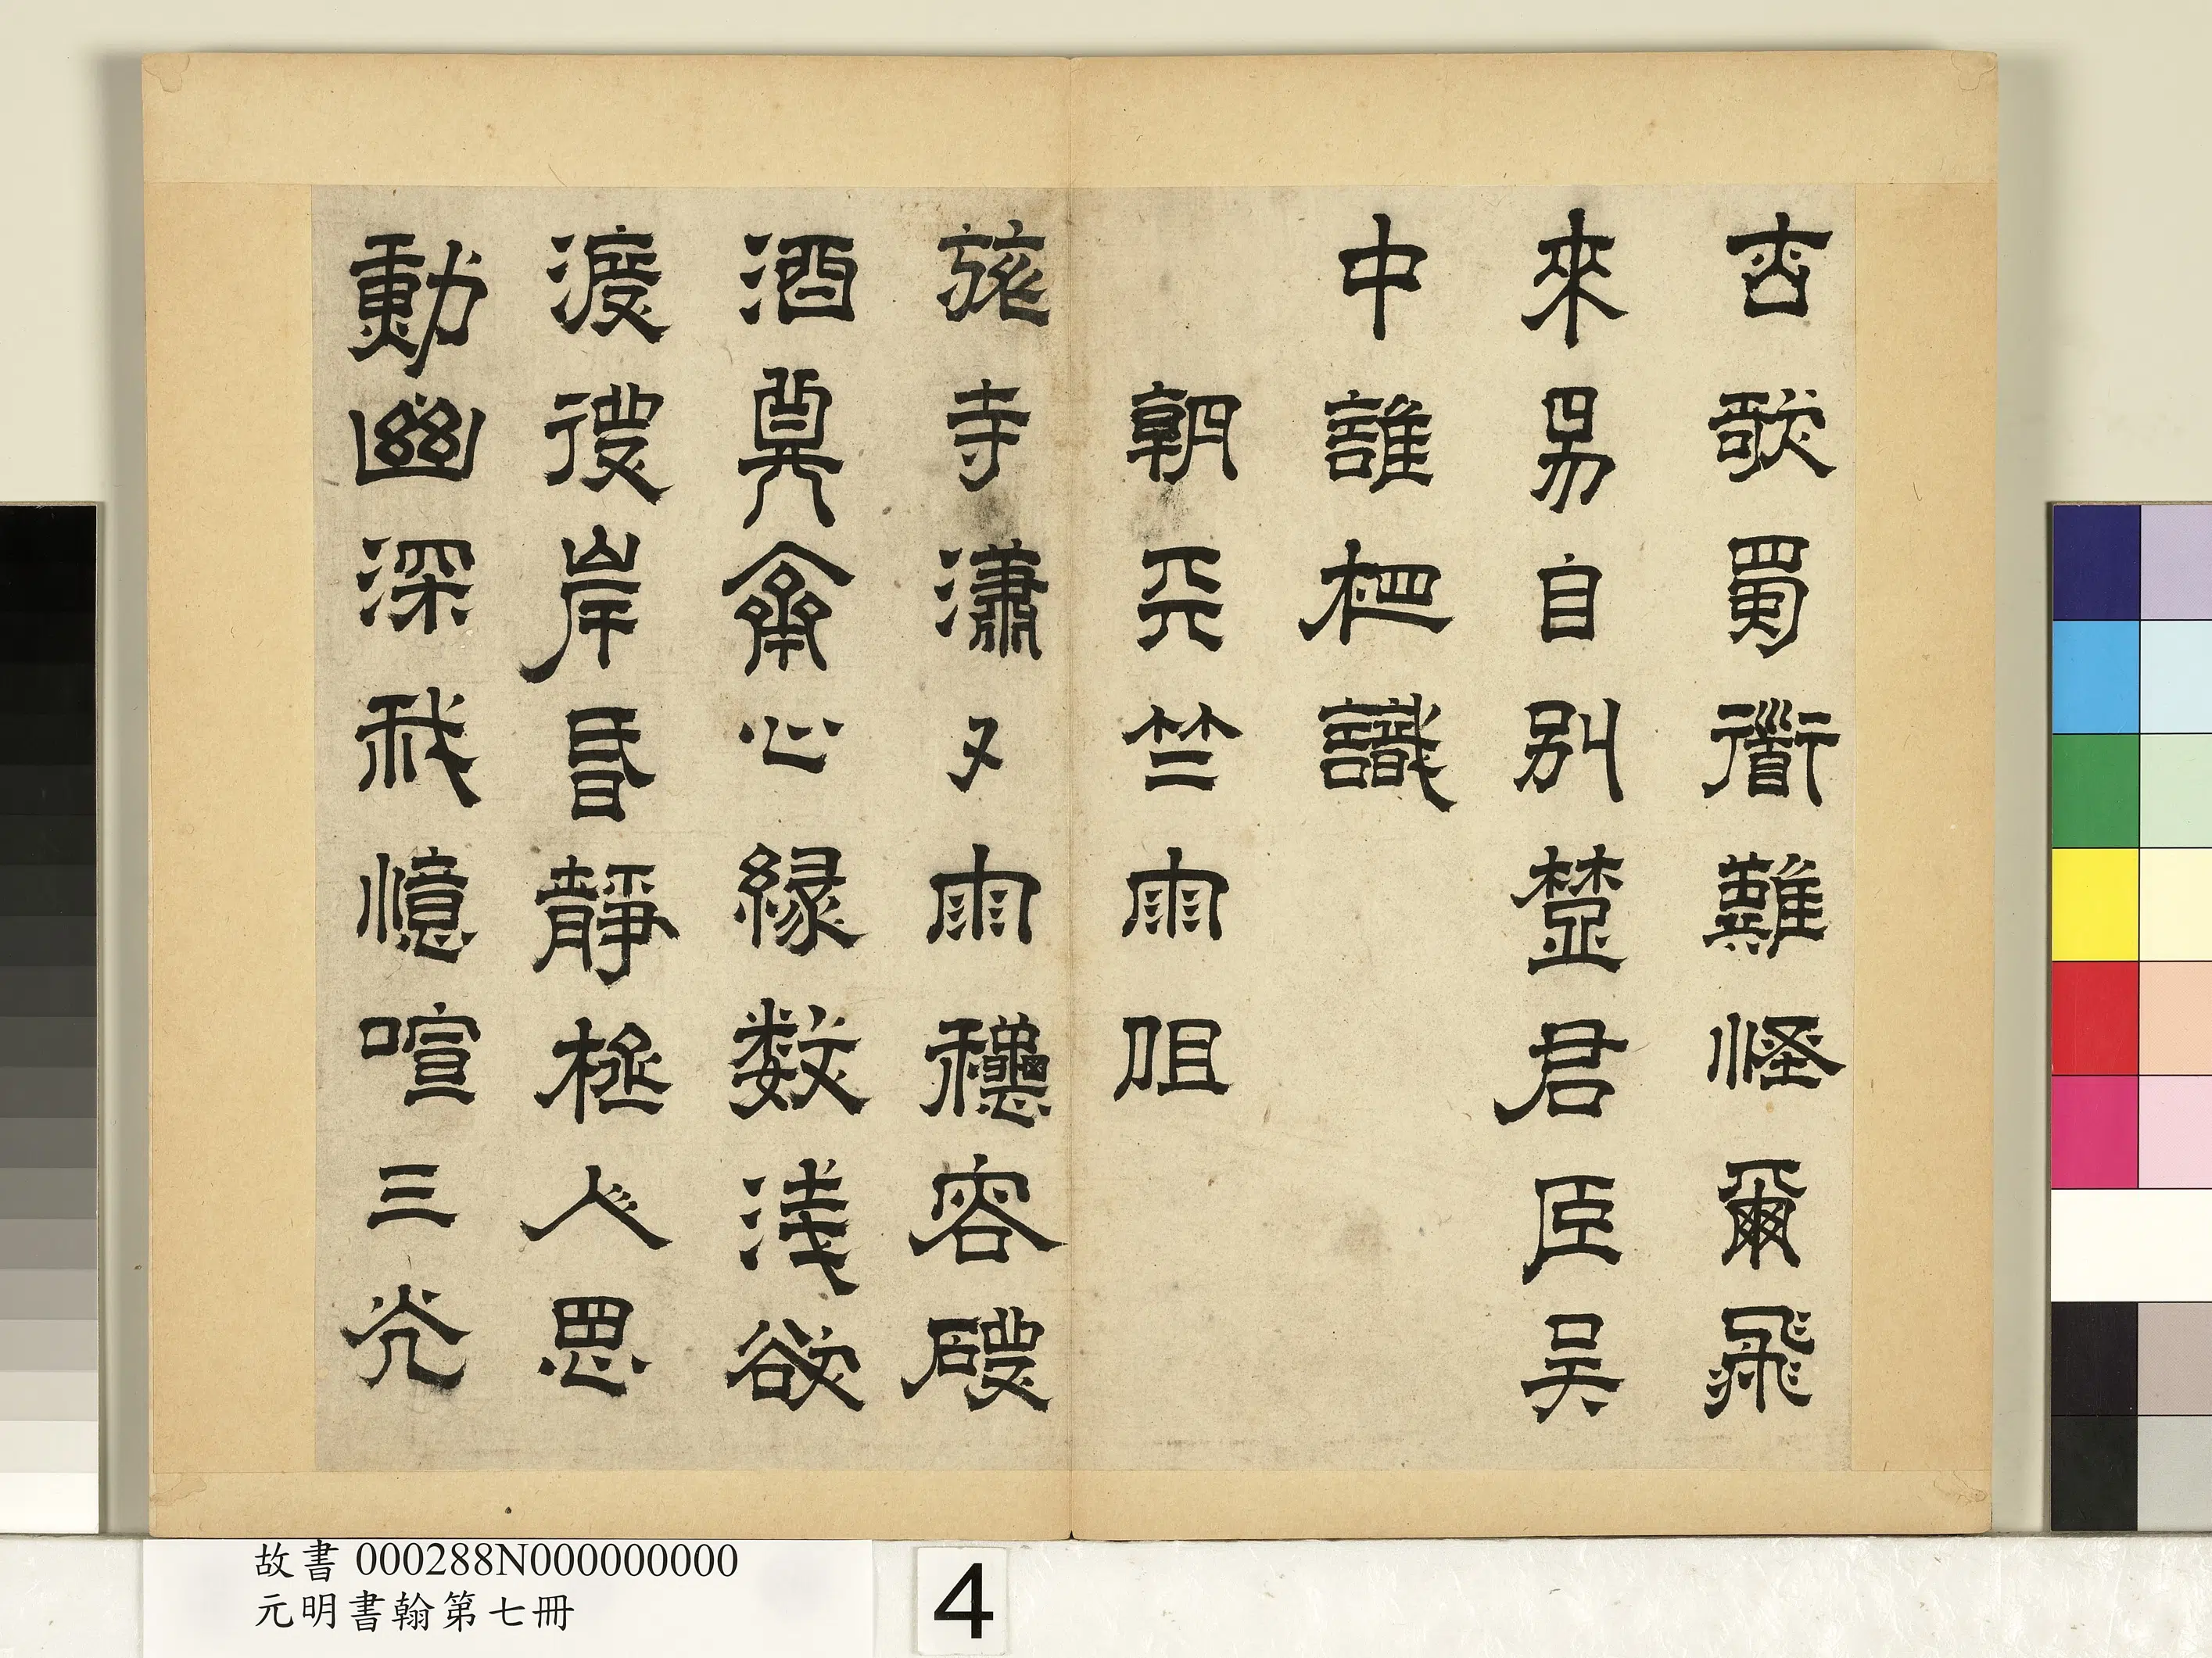 歌蜀衟難怪爾飛
來易自別楚君臣吳
中誰相識
朝天竺雨阻
旅寺瀟々雨穩容暖
酒尊齋心緣數淺欲
渡彼岸昏靜極人思
動幽深我憶喧三光
故書 000288N000000000
元明書翰第七冊
4